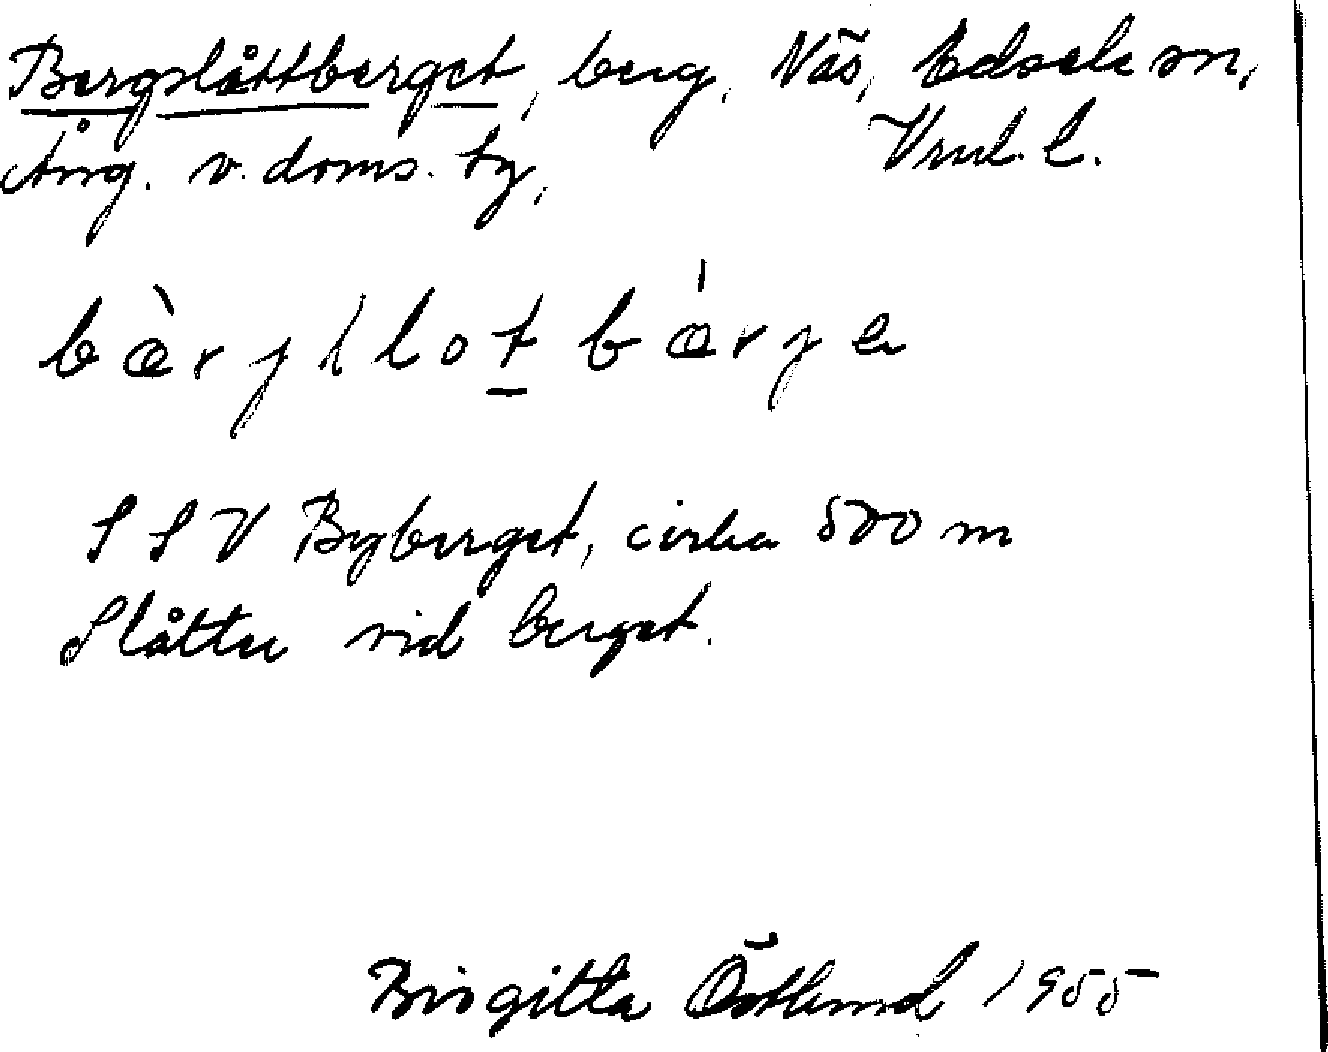 Bergslåttberget, berg, Näs, Edsele sn,
Ång. v. doms. tg, Vnul. l.
SSV Byberget, cirka 500 m
Slåtter vid berget.
Birgitta Östlund 1955